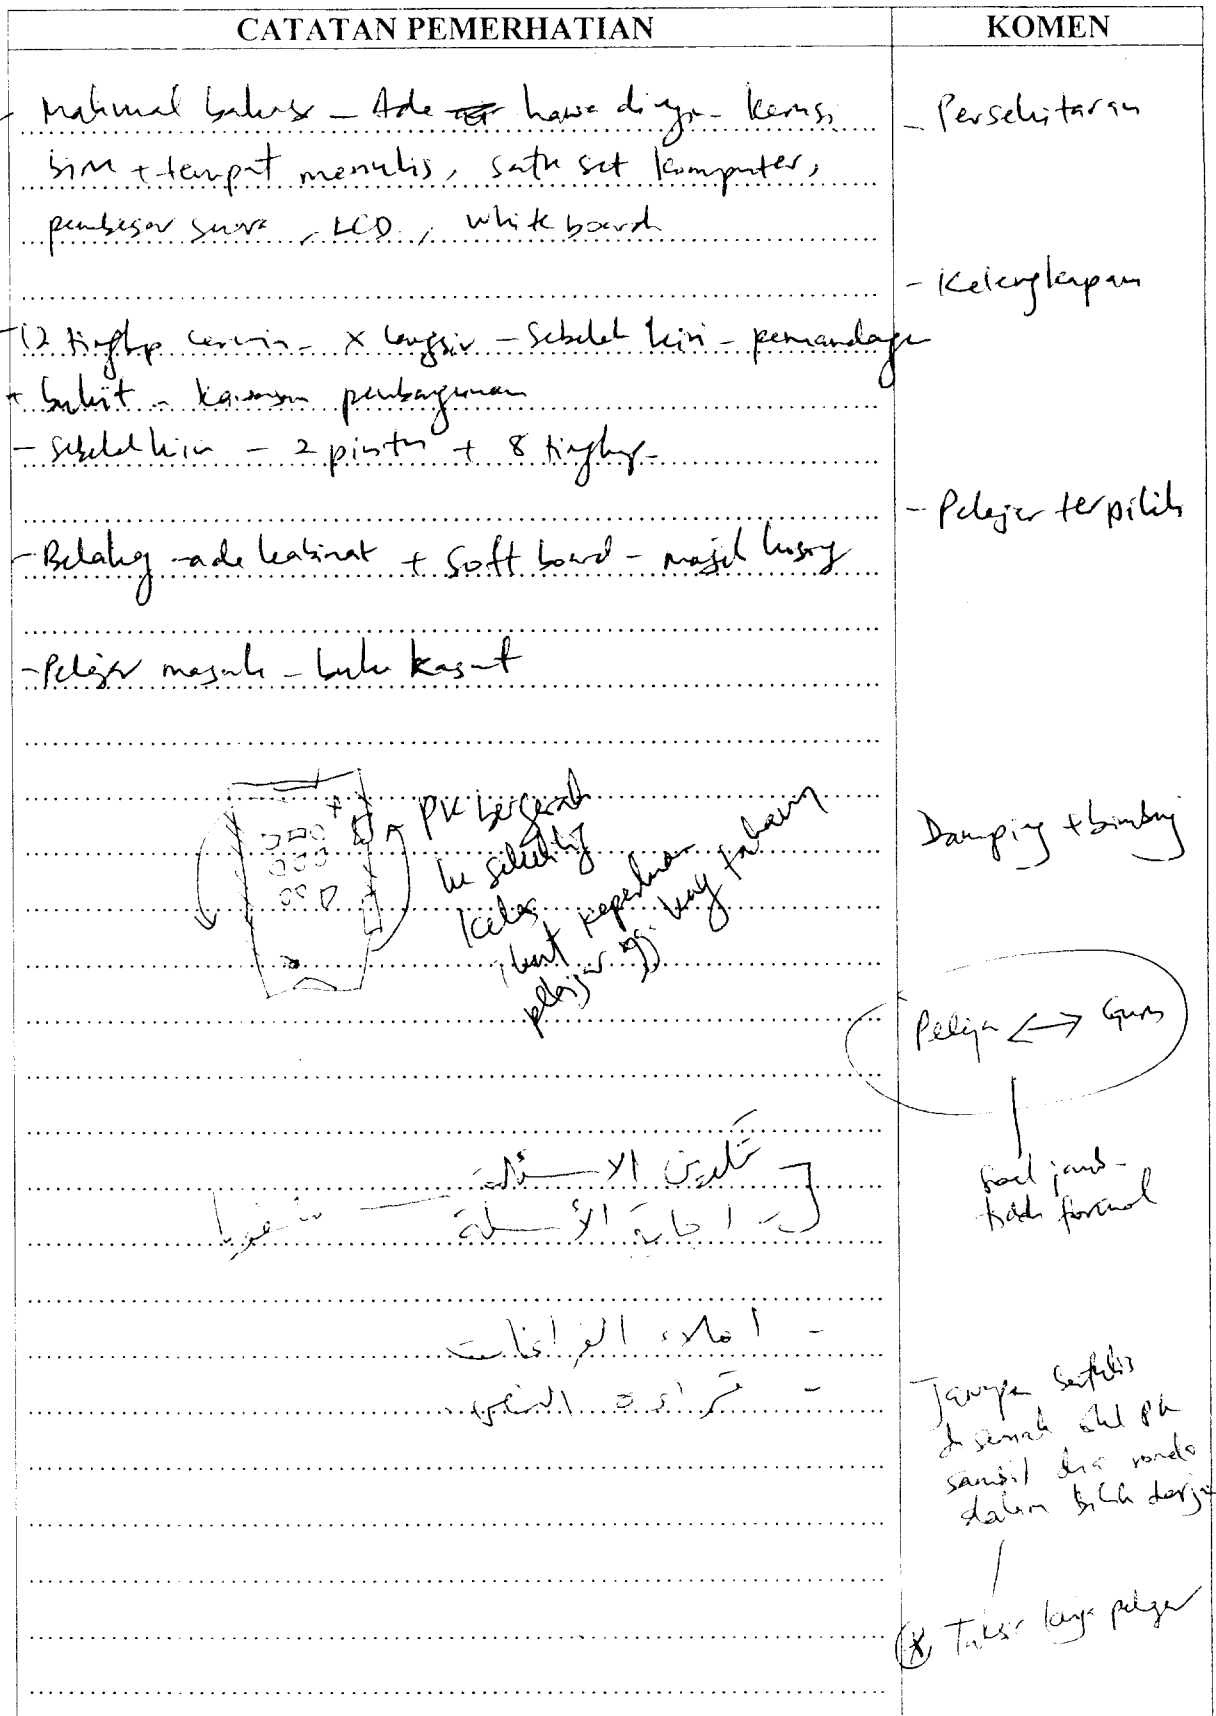 CATATAN PEMERHATIAN
KOMEN
- Makmal bahasa - Ada hawa dingin - kerusi
biru + tempat menulis, satu set komputer,
pembesar suara, LCD, white board
- 12 tingkap cermin - X langsir - sebelah kiri - pemandangan
+ bukit - kawasan pembangunan
- Sebelah kiri - 2 pintu + 8 tingkap
- Belakang - ada kabinet + soft board - masih kosong
- Pelajar masuk - buka kasut
PK bergerak
ke sekeliling
kelas
ikut keperluan
pelajar yg. kurang faham
تكوين الاسئلة
- اجابة الأسئلة - شفويا
- املاء الفراغات
- قراءة النص
- Persekitaran
- Kelengkapan
- Pelajar terpilih
Damping + bimbing
Pelajar ↔ Guru
Soal jawab -
tidak formal
Jawapan bertulis
disemak oleh PK
sambil dia ronda
dalam bilik darjah
* Taksir kerja pelajar